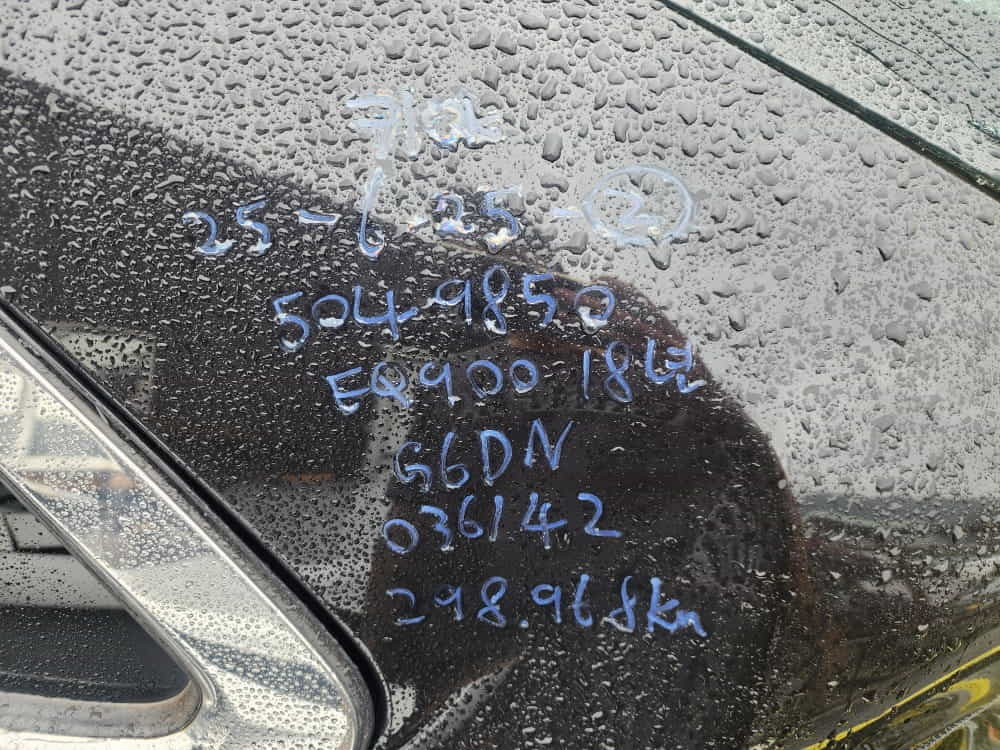 25-6-25-②
5049850
EQ900 18년
G6DN
036142
298.968km